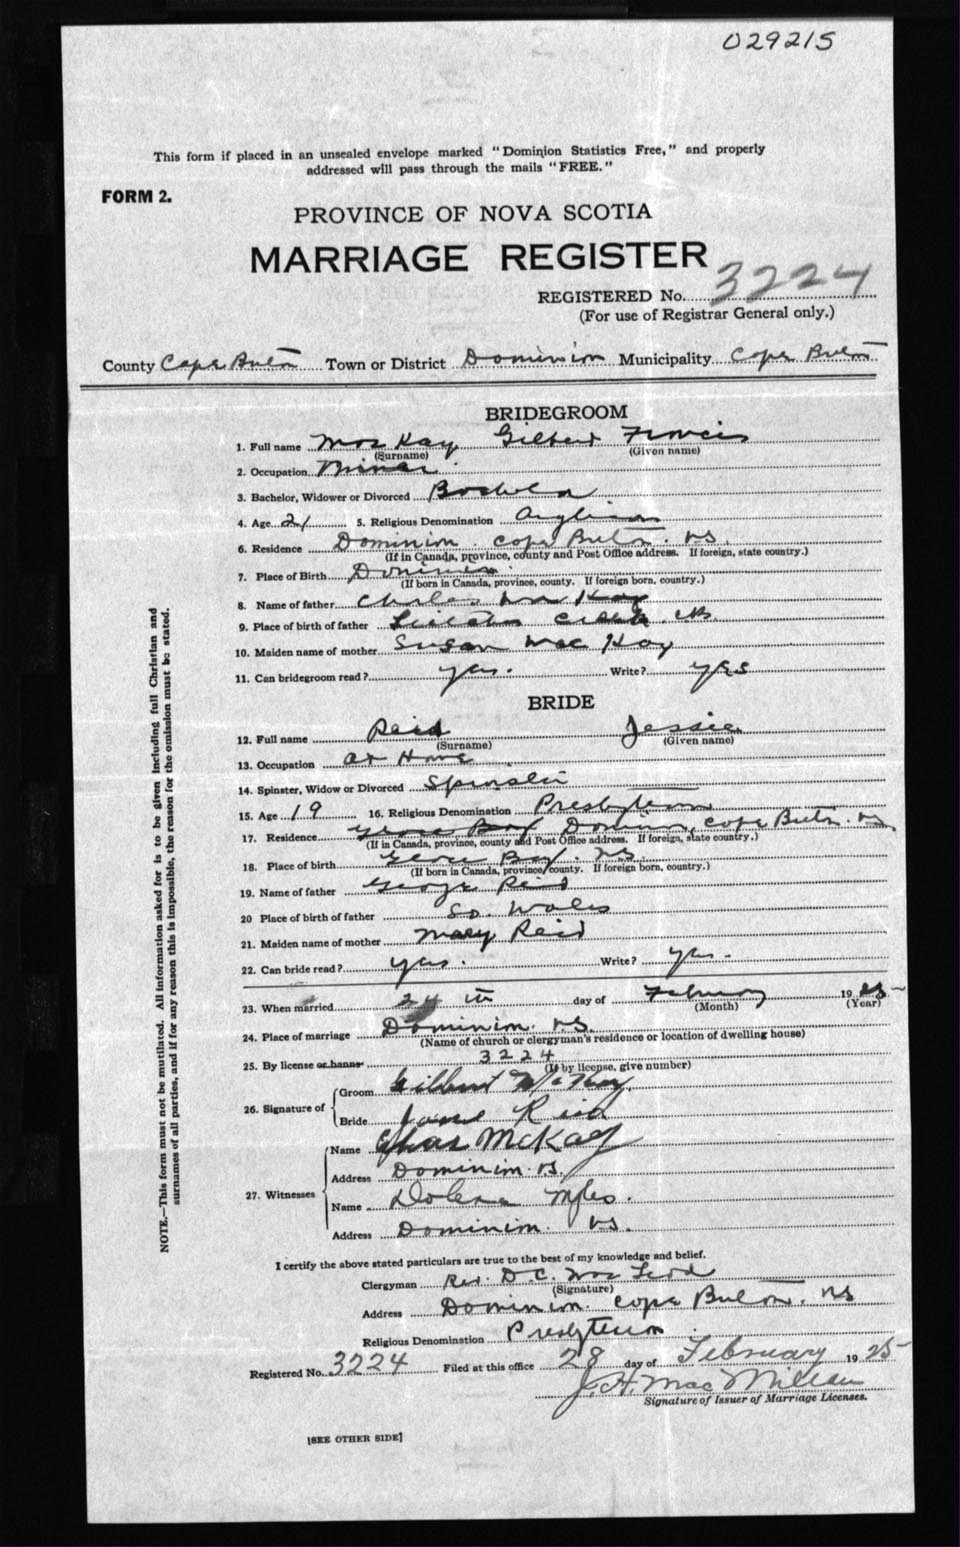 029215
This form if placed in an unsealed envelope marked "Dominion Statistics Free," and properly
addressed will pass through the mails "FREE."
FORM 2.
PROVINCE OF NOVA SCOTIA
MARRIAGE REGISTER
REGISTERED No. 3224
(For use of Registrar General only.)
County Cape Breton Town or District Dominion Municipality Cape Breton
BRIDEGROOM
1. Full name MacKay Gilbert Francis
(Surname) (Given name)
2. Occupation Miner
3. Bachelor, Widower or Divorced Bachelor
4. Age 21 5. Religious Denomination Anglican
6. Residence Dominion. Cape Breton. NS.
(If in Canada, province, county and Post Office address. If foreign, state country.)
7. Place of Birth Dominion.
(If born in Canada, province, county. If foreign born, country.)
8. Name of father Charles MacKay
9. Place of birth of father NS.
10. Maiden name of mother Susan MacKay
11. Can bridegroom read? yes. Write? yes
BRIDE
12. Full name Reid Jessie
(Surname) (Given name)
13. Occupation at Home
14. Spinster, Widow or Divorced Spinster
15. Age 19 16. Religious Denomination Presbyterian
17. Residence Glace Bay Dominion, Cape Breton. NS
(If in Canada, province, county and Post Office address. If foreign, state country.)
18. Place of birth Glace Bay. NS.
(If born in Canada, province, county. If foreign born, country.)
19. Name of father George Reid
20 Place of birth of father So. Wales
21. Maiden name of mother Mary Reid
22. Can bride read? yes. Write? yes.
23. When married 24th day of February 1925
(Month) (Year)
24. Place of marriage Dominion. NS.
(Name of church or clergyman's residence or location of dwelling house)
25. By license or banns 3224
(If by license, give number)
26. Signature of Groom Gilbert McKay
Bride Reid
27. Witnesses Name Chas McKay
Address Dominion. NS.
Name Dolena Myles.
Address Dominion. NS.
I certify the above stated particulars are true to the best of my knowledge and belief.
Clergyman Rev. D. C. MacLeod
(Signature)
Address Dominion. Cape Breton. NS
Religious Denomination Presbyterian
Registered No. 3224 Filed at this office 28 day of February 1925
J. H. MacMillan
Signature of Issuer of Marriage Licenses.
[SEE OTHER SIDE]
NOTE.—This form must not be mutilated. All information asked for is to be given including full Christian and
surnames of all parties, and if for any reason this is impossible, the reason for the omission must be stated.